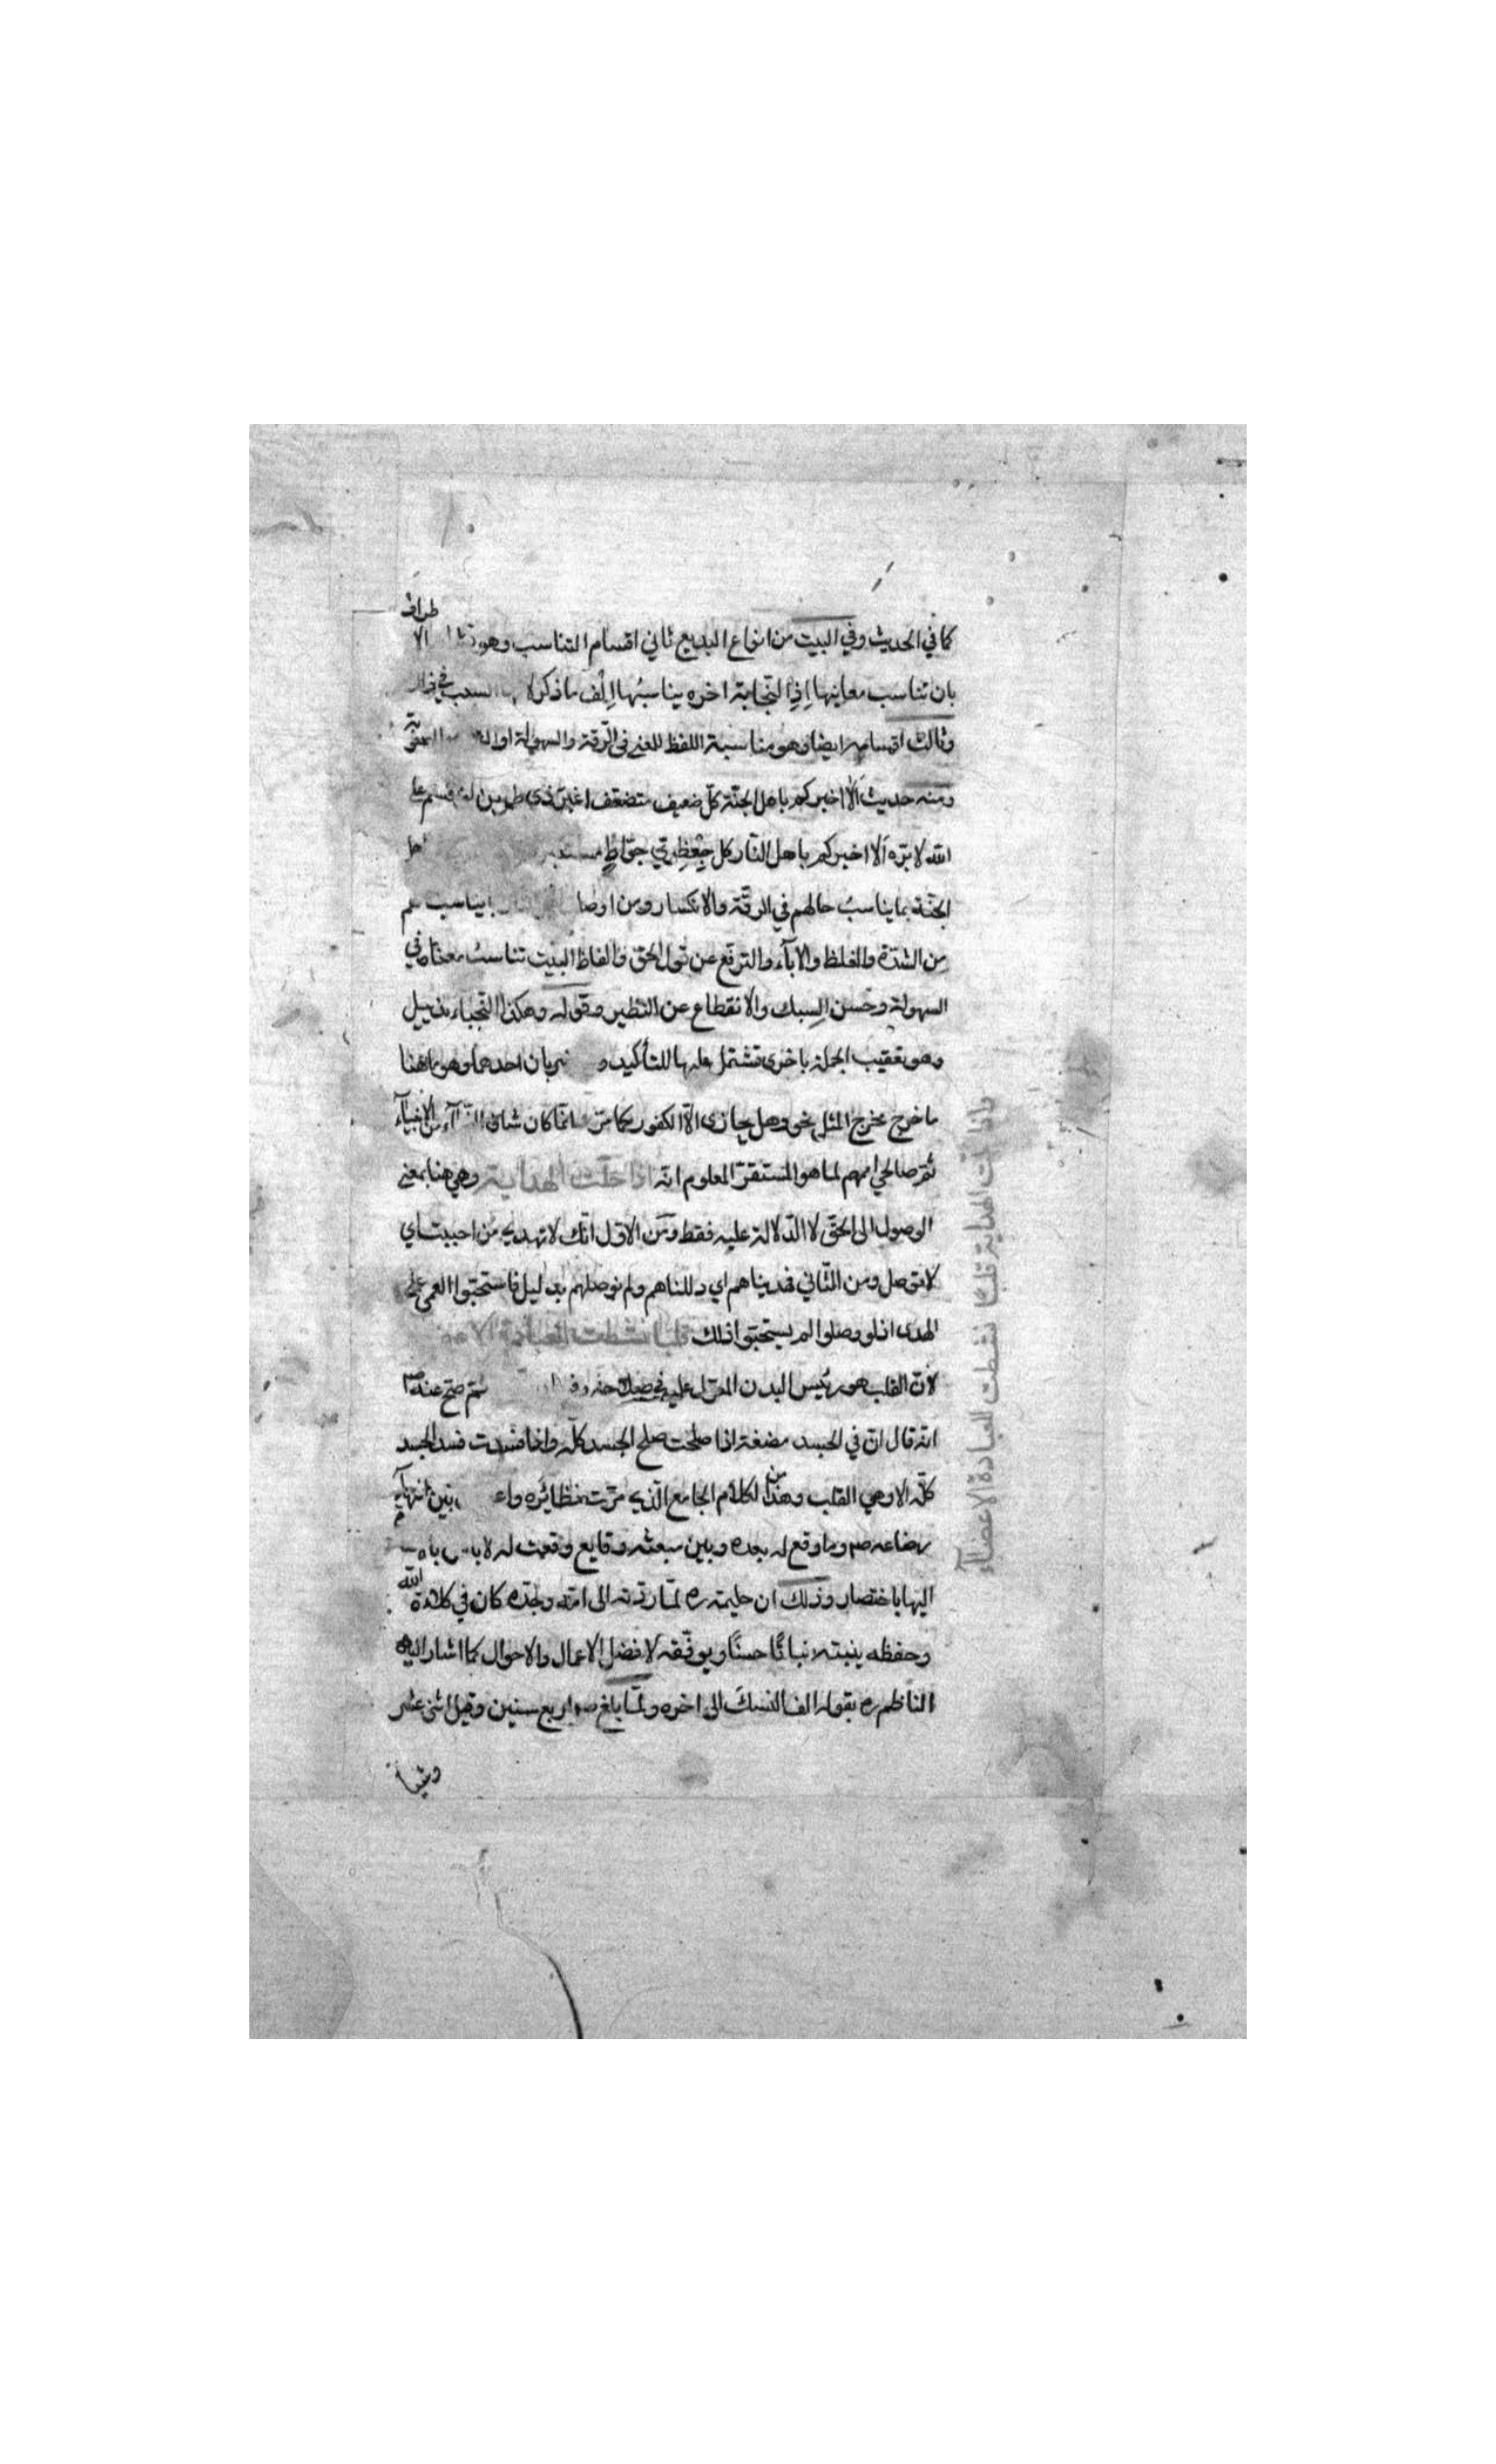 كما في الحديث وفي البيت من انواع البديع ثاني اقسام التناسب وهو الاطراف
بان تناسب معانيها اذ النجابة اخره يناسبها الف ما ذكر
وثالث اقسامه ايضا وهو مناسبة اللفظ للمعنى في الرقة والسهولة او
ومنه حديث ألا اخبركم باهل الجنة كل ضعيف متضعف اغبر ذي طمرين لو اقسم على
الله لابره ألا اخبركم باهل النار كل جعظري جواظ اهل
الجنة بما يناسب حالهم في الرقة والانكسار ومن اوصاف بما يناسب حالهم
من الشدة والغلظ والاباء والترفع عن قول الحق والفاظ البيت تناسب معناها في
السهولة وحسن السبك والانقطاع عن النظير وقوله وهكذا النجباء تذييل
وهو تعقيب الجملة باخرى تشتمل عليها للتأكيد و ضربان احدهما وهو ما هنا
ما خرج مخرج المثل نحو وهل يجازى الا الكفور كما مر انما كان شان من الانبياء
ثم صالحي اممهم لما هو المستقر المعلوم انه اذا حلت الهداية وهي هنا بمعنى
الوصول الى الحق لا الدلالة عليه فقط ومن الاول انك لا تهدي من احببت اي
لا توصل ومن الثاني فهديناهم اي دللناهم ولم نوصلهم بدليل فاستحبوا العمى على
الهدى اذ لو وصلوا لم يستحبوا ذلك قلبا نشطت للعبادة الاعضاء
لان القلب هو رئيس البدن المعول عليه في صلاحه و ثم صح عنه ص
انه قال ان في الجسد مضغة اذا صلحت صلح الجسد كله واذا فسدت فسد الجسد
كله الا وهي القلب وهذا من الكلام الجامع الذي مرت نظائره بين انتهاء
رضاعه صم وما وقع له بعده وبين مبعثه وقايع وقعت له لا باس
اليها باختصار وذلك ان حليمة ره لما ردته الى امه وجده كان في كلاءة الله
وحفظه ينبته نباتا حسنا ويوفقه لافضل الاعمال والاحوال كما اشار اليه
الناظم ره بقوله الف النسك الى اخره ولما بلغ صم اربع سنين وقيل اثنى عشر
واذا حلت الهداية قلبا نشطت للعبادة الاعضاء